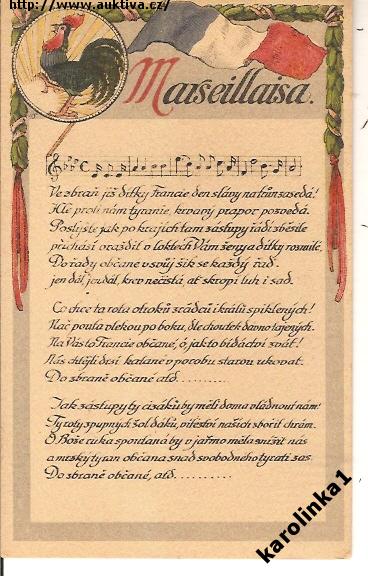 http://www.auktiva.cz/
Marseillaisa.
Ve zbraň již dítky Francie den slávy na trůn zasedá!
Hle proti nám tyranie, krvavý prapor pozvedá.
Poslyšte jak po krajích tam zástupy řádí zběsile
přichází vraždit v loktech Vám ženy a dítky rozmilé.
Do řady občané v svůj šik se každý řaď
jen dál, jen dál, krev nečistá, ať skropí luh i sad.
Co chce ta rota otroků zrádců i králů spiklených!
Nač pouta vlekou po boku, dle choutek dávno tajených.
Na Vás to Francie občané, ó jak to bídáctví zvát!
Nás chtějí drzí katané v porobu starou ukovat.
Do zbraně občané atd..........
Jak zástupy ty cizáků by měli doma vládnout nám!
Ty roty zpupných žoldáků, vítěství našich bořit chrám.
Ó Bože ruka spoutaná by v jařmo měla snížit nás
a mrzký tyran občana snad svobodného týrati zas.
Do zbraně občané, atd..........
karolinka1